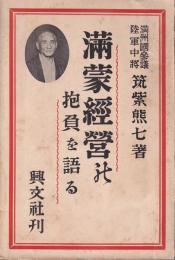 満洲國参議
陸軍中將
筑紫熊七著
滿蒙經營の
抱負を語る
興文社刊